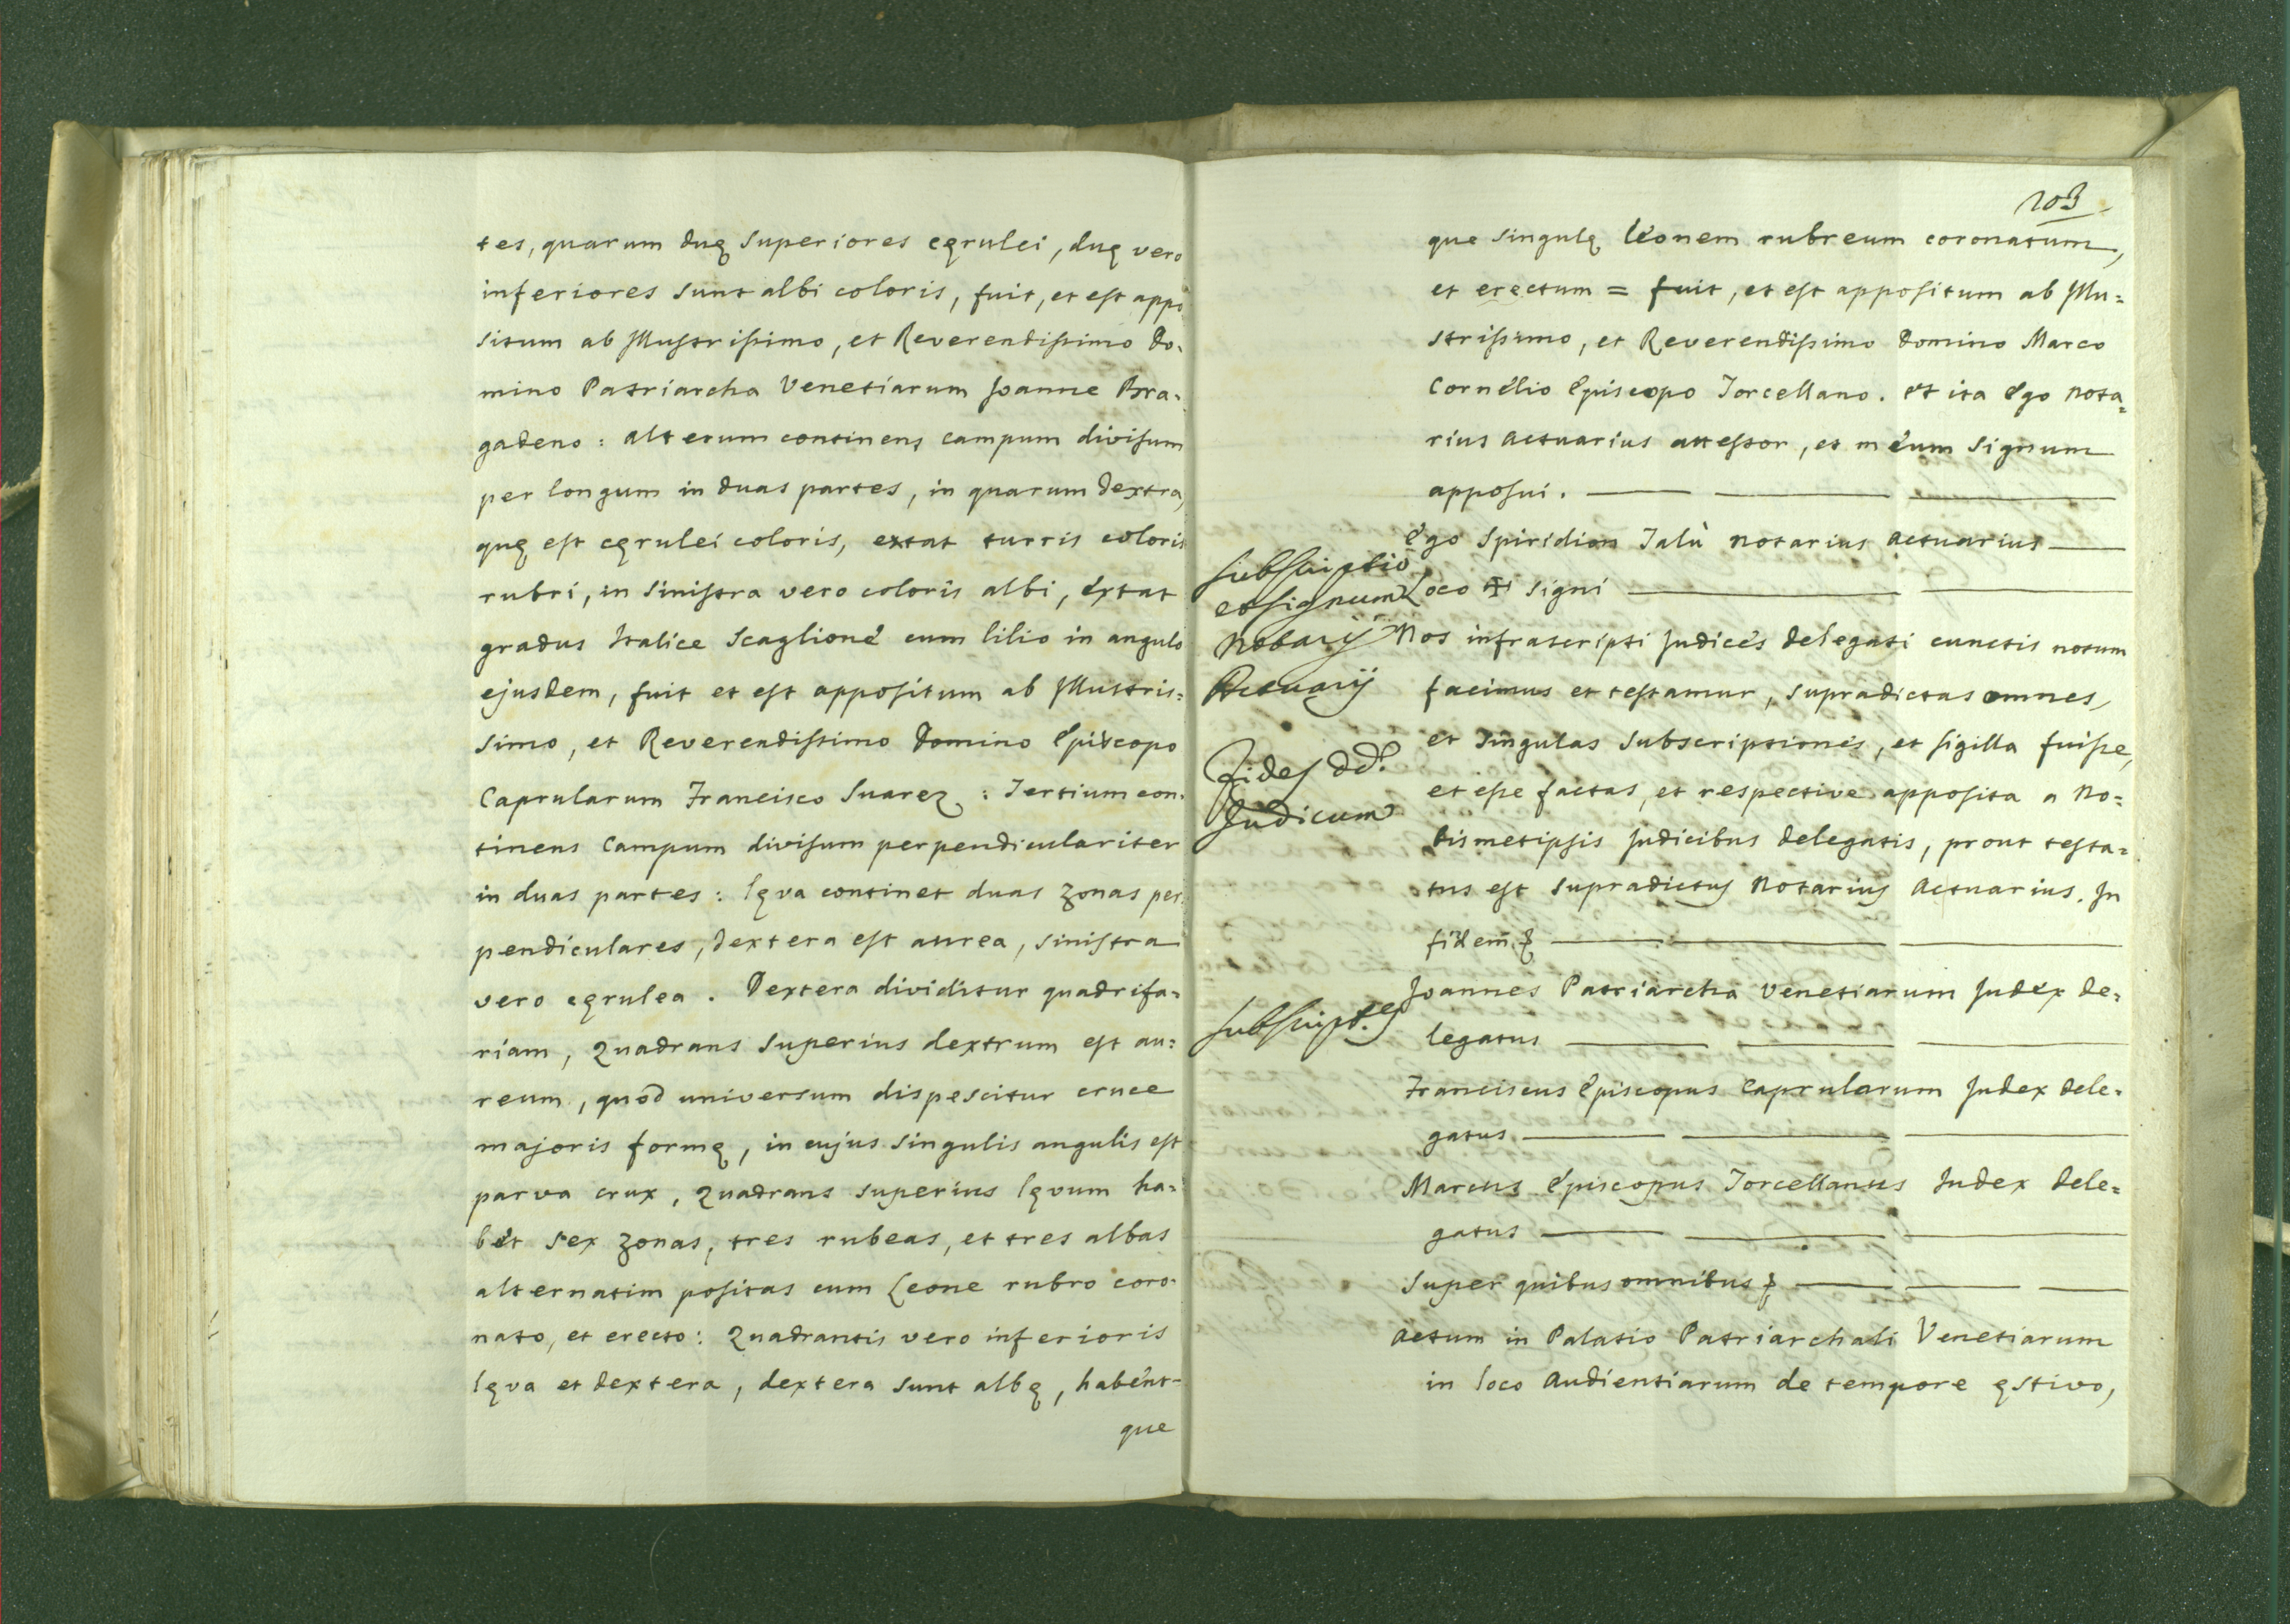 tes, quarum duę superiores cęrulei, duę vero
inferiores sunt albi coloris, fuit, et est appo
situm ab Illustrissimo, et Reverendissimo Do-
mino Patriarcha Venetiarum Joanne Bra-
gadeno: alterum continens campum divisum
per longum in duas partes, in quarum dextra,
quę est cęrulei coloris, extat turris coloris
rubri, in sinistra vero coloris albi, extat
gradus Italice Scaglione cum lilio in angulo
ejusdem, fuit et est appositum ab Illustris=
simo, et Reverendissimo Domino Episcopo
Caprularum Francisco Suarez: Tertium con-
tinens Campum divisum perpendiculariter
in duas partes: lęva continet duas zonas per
pendiculares, dextera est aurea, sinistra
vero cęrulea. Dextera dividitur quadrifa-
riam, Quadrans superius dextrum est au=
reum, quod universum dispescitur cruce
majoris formę, in cujus singulis angulis est
parva crux, Quadrans superius lęvum ha-
bet sex zonas, tres rubeas, et tres albas
alternatim positas cum Leone rubro coro-
nato, et erecto: Quadrantis vero inferioris
lęva et dextera, dextera sunt albę, habent-
que
103
que singulę leonem rubreum coronatum,
et erectum = fuit, et est appositum ab Illu=
strissimo, et Reverendissimo Domino Marco
Cornelio Episcopo Torcellano. et ita Ego nota=
rius actuarius attestor, et meum signum
apposui.
Ego Spiridion Talù notarius actuarius
Subscriptio
et signum
Notarij
Actuarij
Loco ✠ signi
Nos infrascripti Judices delegati cunctis notum
facimus et testamur, supradictas omnes,
et singulas subscriptiones, et sigilla fuisse,
Fides dd.
Judicum
et esse factas, et respective apposita a no=
bismetipsis Judicibus delegatis, prout testa=
tus est supradictus notarius actuarius. In
fidem
Joannes Patriarcha Venetiarum Judex de-
Subscript.es
legatus
Franciscus Episcopus Caprularum Judex dele-
gatus
Marcus Episcopus Torcellanus Judex dele=
gatus
Super quibus omnibus
actum in Palatio Patriarchali Venetiarum
in loco Audientiarum de tempore ęstivo,